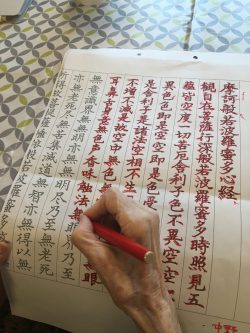 摩訶般若波羅蜜多心経
観自在菩薩行深般若波羅蜜多時照見五
蘊皆空度一切苦厄舎利子色不異空空
異色色即是空空即是色受
是舎利子是諸法空相不生
不増不減是故空中無色無
耳鼻舌身意無色声香味触法無眼
無意識界無明尽乃至
亦無老死尽無苦集滅道無智亦無得以無
所得故菩提薩埵依般若波羅蜜多